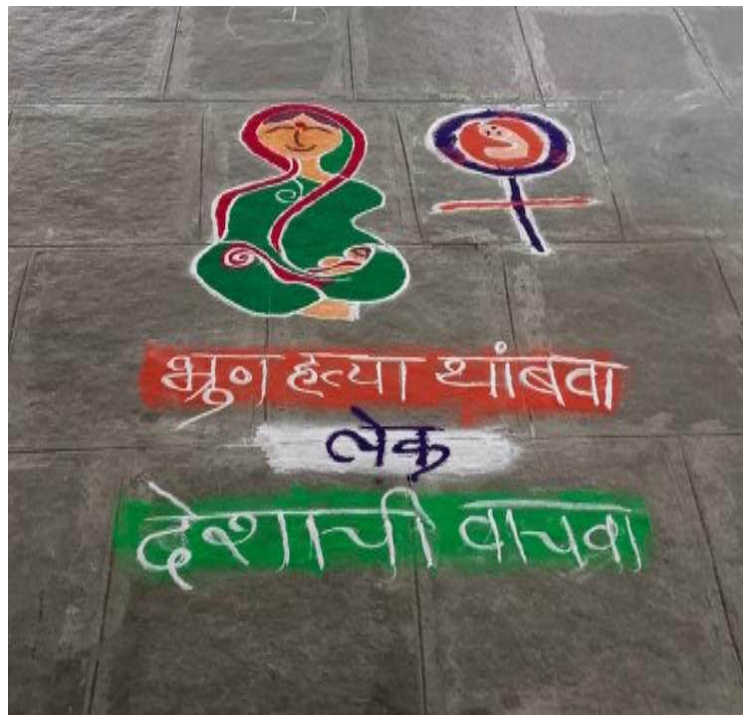 भ्रुण हत्या थांबवा
लेक
देशाची वाचवा